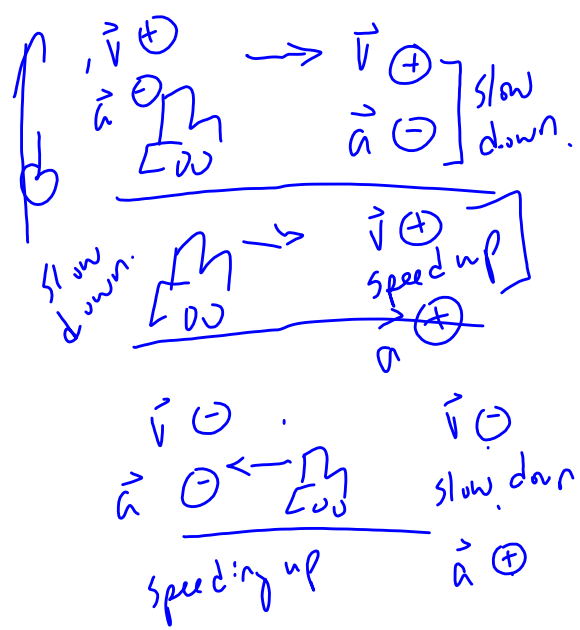 v⃗ ⊕
a⃗ ⊖
v⃗ ⊕
a⃗ ⊖
slow
down.
slow
down.
v⃗ ⊕
speed up
a⃗ ⊕
v⃗ ⊖
a⃗ ⊖
speeding up
v⃗ ⊖
slow down
a⃗ ⊕